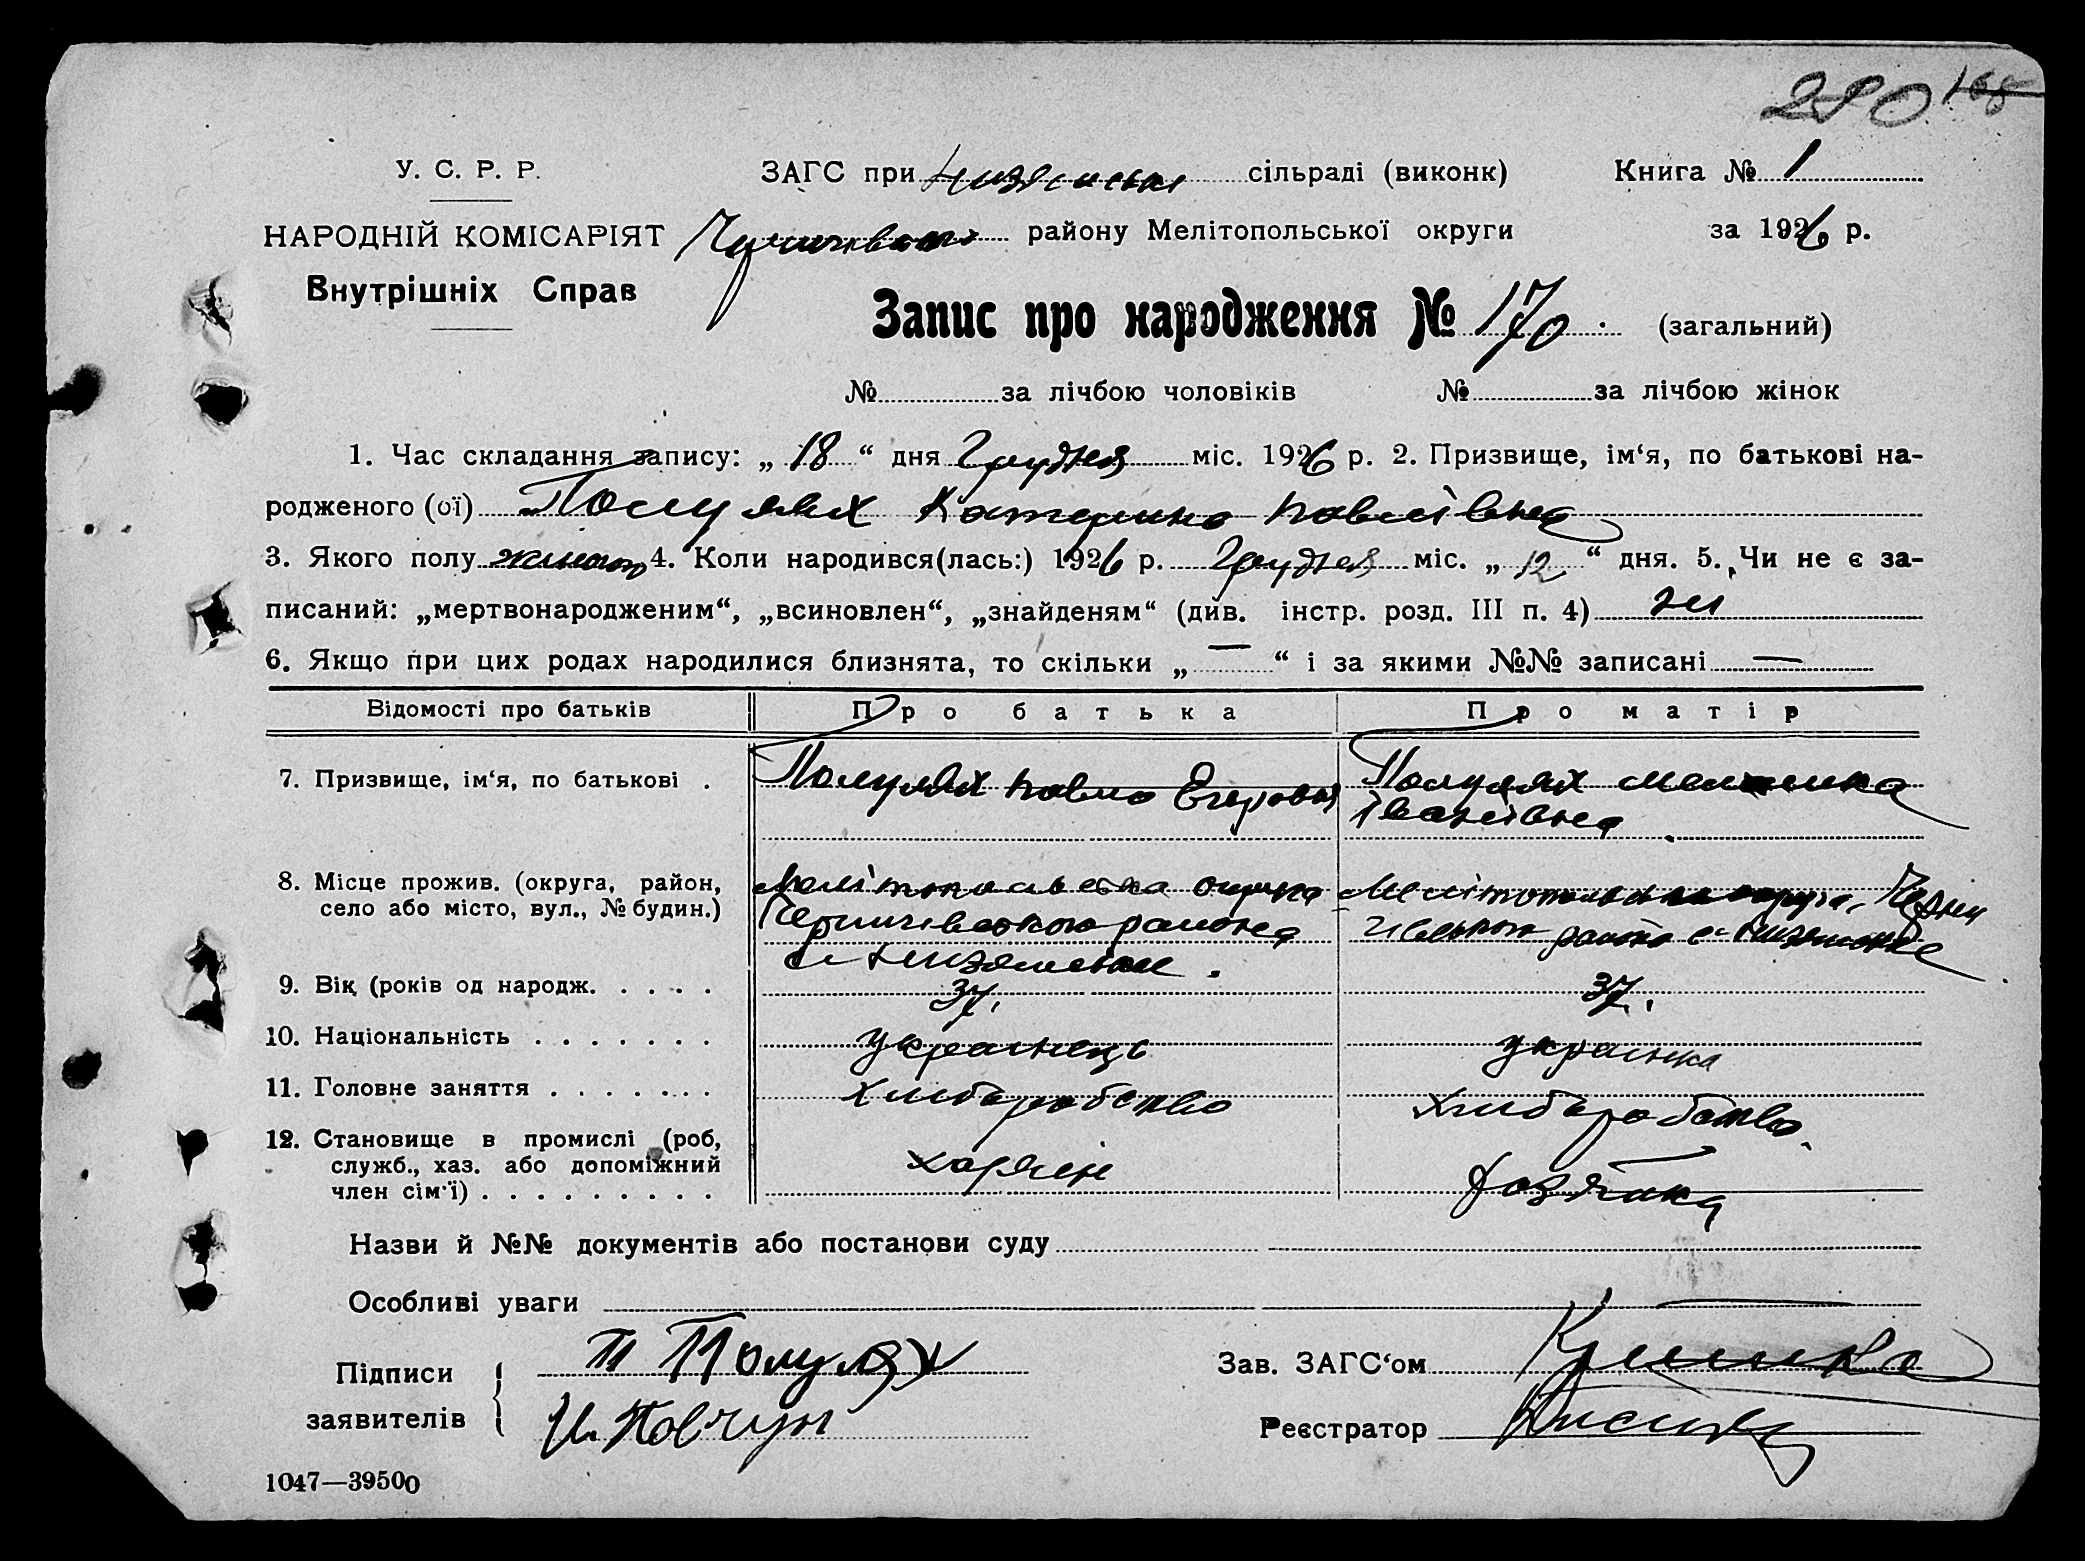 280 168
У. С. Р. Р. ЗАГС при сільраді (виконк) Книга № 1
НАРОДНІЙ КОМІСАРІЯТ району Мелітопольської округи за 1926 р.
Внутрішніх Справ
Запис про народження № 170 (загальний)
№ за лічбою чоловіків № за лічбою жінок
1. Час складання запису: „ 18 “ дня Грудня міс. 1926 р. 2. Призвище, ім‘я, по батькові на-
родженого (ої) Полулях Катерина Павлівна
3. Якого полу жіного 4. Коли народився(лась:) 1926 р. Грудня міс. „ 12 “ дня. 5. Чи не є за-
писаний: „мертвонародженим“, „всиновлен“, „знайденям“ (див. інстр. розд. III п. 4) ні
6. Якщо при цих родах народилися близнята, то скільки „ — “ і за якими №№ записані —
Відомості про батьків Про батька Про матір
7. Призвище, ім‘я, по батькові . Полулях Павло Егорович Полулях
Іванівна
8. Місце прожив. (округа, район, Мелітопольська округа Мелітопольська округа,
село або місто, вул., № будин.) Чернигівського района района с.
с.
9. Вік (років од народж. . . . . 37. 37.
10. Національність . . . . . . . українець українка
11. Головне заняття . . . . . . . хліборобство хліборобство
12. Становище в промислі (роб,
служб., хаз. або допоміжний хазяїн хазяйка
член сім‘ї) . . . . . . . . .
Назви й №№ документів або постанови суду
Особливі уваги
Підписи П Полулях Зав. ЗАГС‘ом
заявителів И. Ковчун Реєстратор
1047—39500